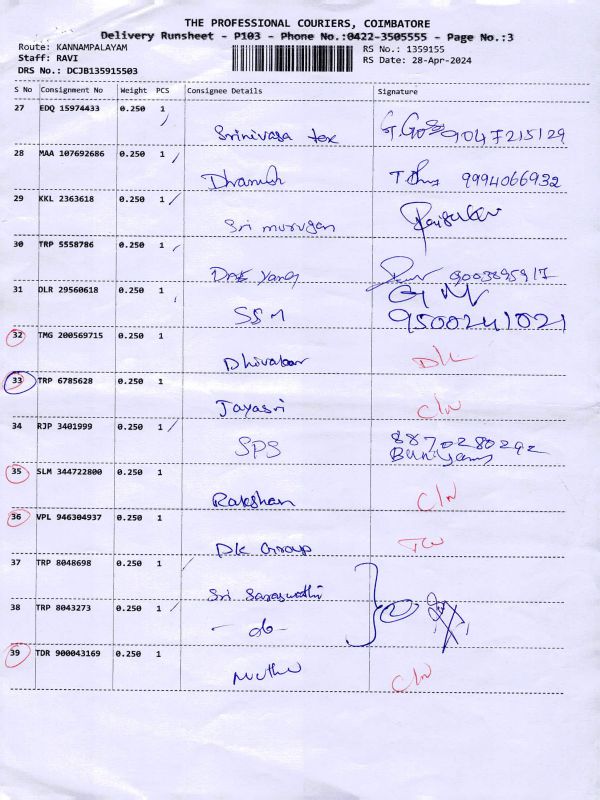 THE PROFESSIONAL COURIERS, COIMBATORE
Delivery Runsheet - P103 - Phone No.:0422-3505555 - Page No.:3
Route: KANNAMPALAYAM
RS No.: 1359155
Staff: RAVI
RS Date: 28-Apr-2024
DRS No.: DCJB135915503
S No Consignment No Weight PCS Consignee Details Signature
27 EDQ 15974433 0.250 1
Srinivasa tex 9047215129
28 MAA 107692686 0.250 1
Dhanush 9994066932
29 KKL 2363618 0.250 1
Sri murugan
30 TRP 5558786 0.250 1
9003895917
31 DLR 29560618 0.250 1
SSM GM
9500241021
32 TMG 200569715 0.250 1
Dhivakar D/L
33 TRP 6785628 0.250 1
Jayasri C/N
34 RJP 3401999 0.250 1
SPS 8870280292
35 SLM 344722800 0.250 1
Rakshan C/N
36 VPL 946304937 0.250 1
Dk Group
37 TRP 8048698 0.250 1
Sri Saraswathi
38 TRP 8043273 0.250 1
- do -
39 TDR 900043169 0.250 1
Muthu C/N